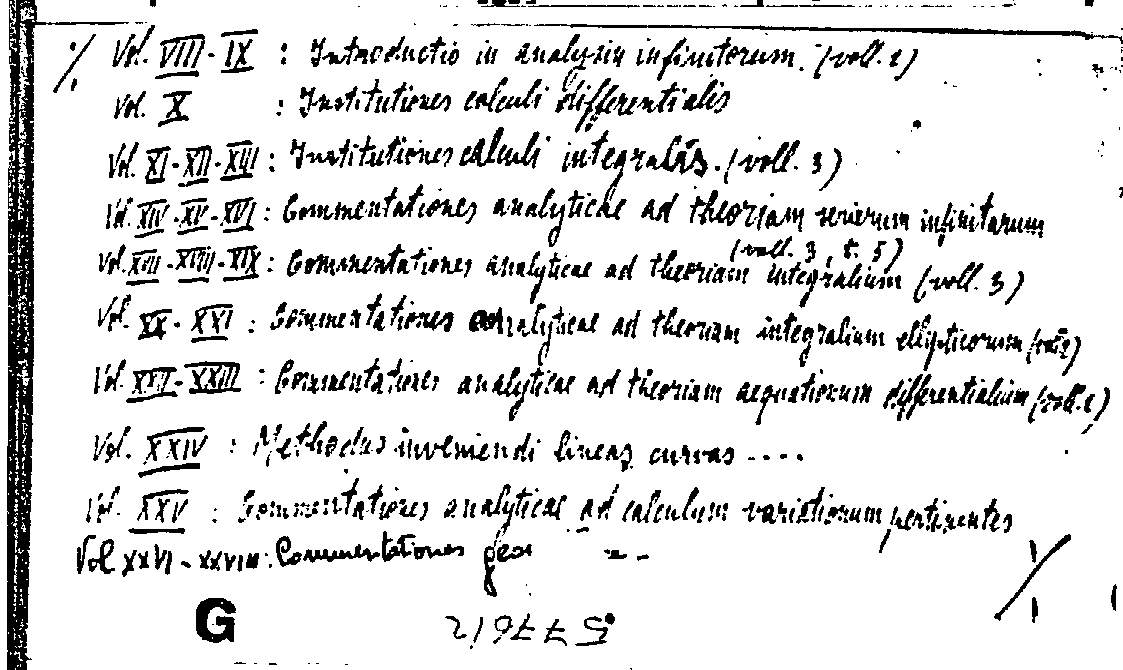 ·/. Vol. VIII - IX : Introductio in analysin infinitorum. (voll. 2)
Vol. X : Institutiones calculi differentialis
Vol. XI - XII - XIII : Institutiones calculi integralis. (voll. 3)
Vol. XIV - XV - XVI : Commentationes analyticae ad theoriam serierum infinitarum
(voll. 3, t. 5)
Vol. XVII - XVIII - XIX : Commentationes analyticae ad theoriam integralium (voll. 3)
Vol. XX - XXI : Commentationes analyticae ad theoriam integralium ellipticorum
Vol. XXII - XXIII : Commentationes analyticae ad theoriam aequationum differentialium (voll. 2)
Vol. XXIV : Methodus inveniendi lineas curvas ....
Vol. XXV : Commentationes analyticae ad calculum variationum pertinentes
Vol XXVI - XXVIII : Commentationes geom
G